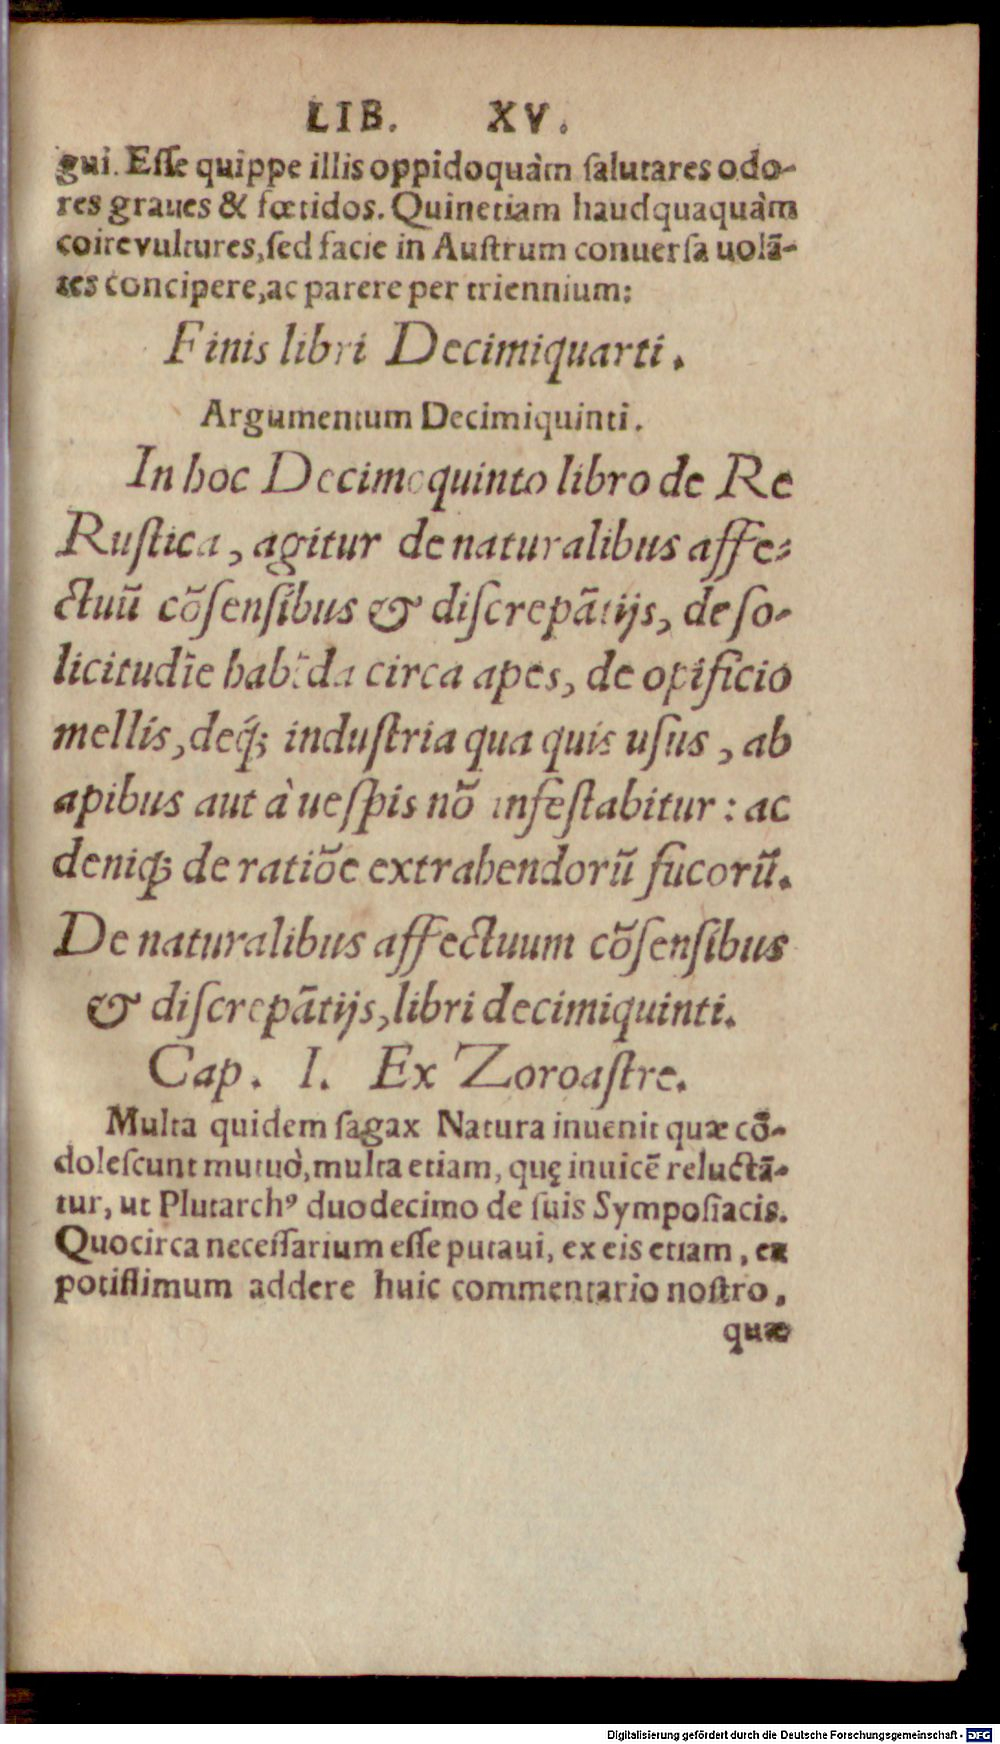 LIB. XV.
gui. Esse quippe illis oppidoquàm salutares odo-
res graues & fœtidos. Quinetiam haudquaquàm
coire vultures, sed facie in Austrum conuersa uolā-
tes concipere, ac parere per triennium:
Finis libri Decimiquarti.
Argumentum Decimiquinti.
In hoc Decimoquinto libro de Re
Rustica, agitur de naturalibus affe-
ctuū cōsensibus & discrepātijs, de so-
licitudīe habīda circa apes, de opificio
mellis, deq́; industria qua quis usus, ab
apibus aut à uespis nō infestabitur: ac
deniq; de ratiōe extrahendorū fucorū.
De naturalibus affectuum cōsensibus
& discrepātijs, libri decimiquinti.
Cap. I. Ex Zoroastre.
Multa quidem sagax Natura inuenit quæ cō-
dolescunt mutuò, multa etiam, quę inuicē reluctā-
tur, ut Plutarchꝰ duodecimo de suis Symposiacis.
Quocirca necessarium esse putaui, ex eis etiam, ea
potissimum addere huic commentario nostro,
quæ
Digitalisierung gefördert durch die Deutsche Forschungsgemeinschaft - DFG